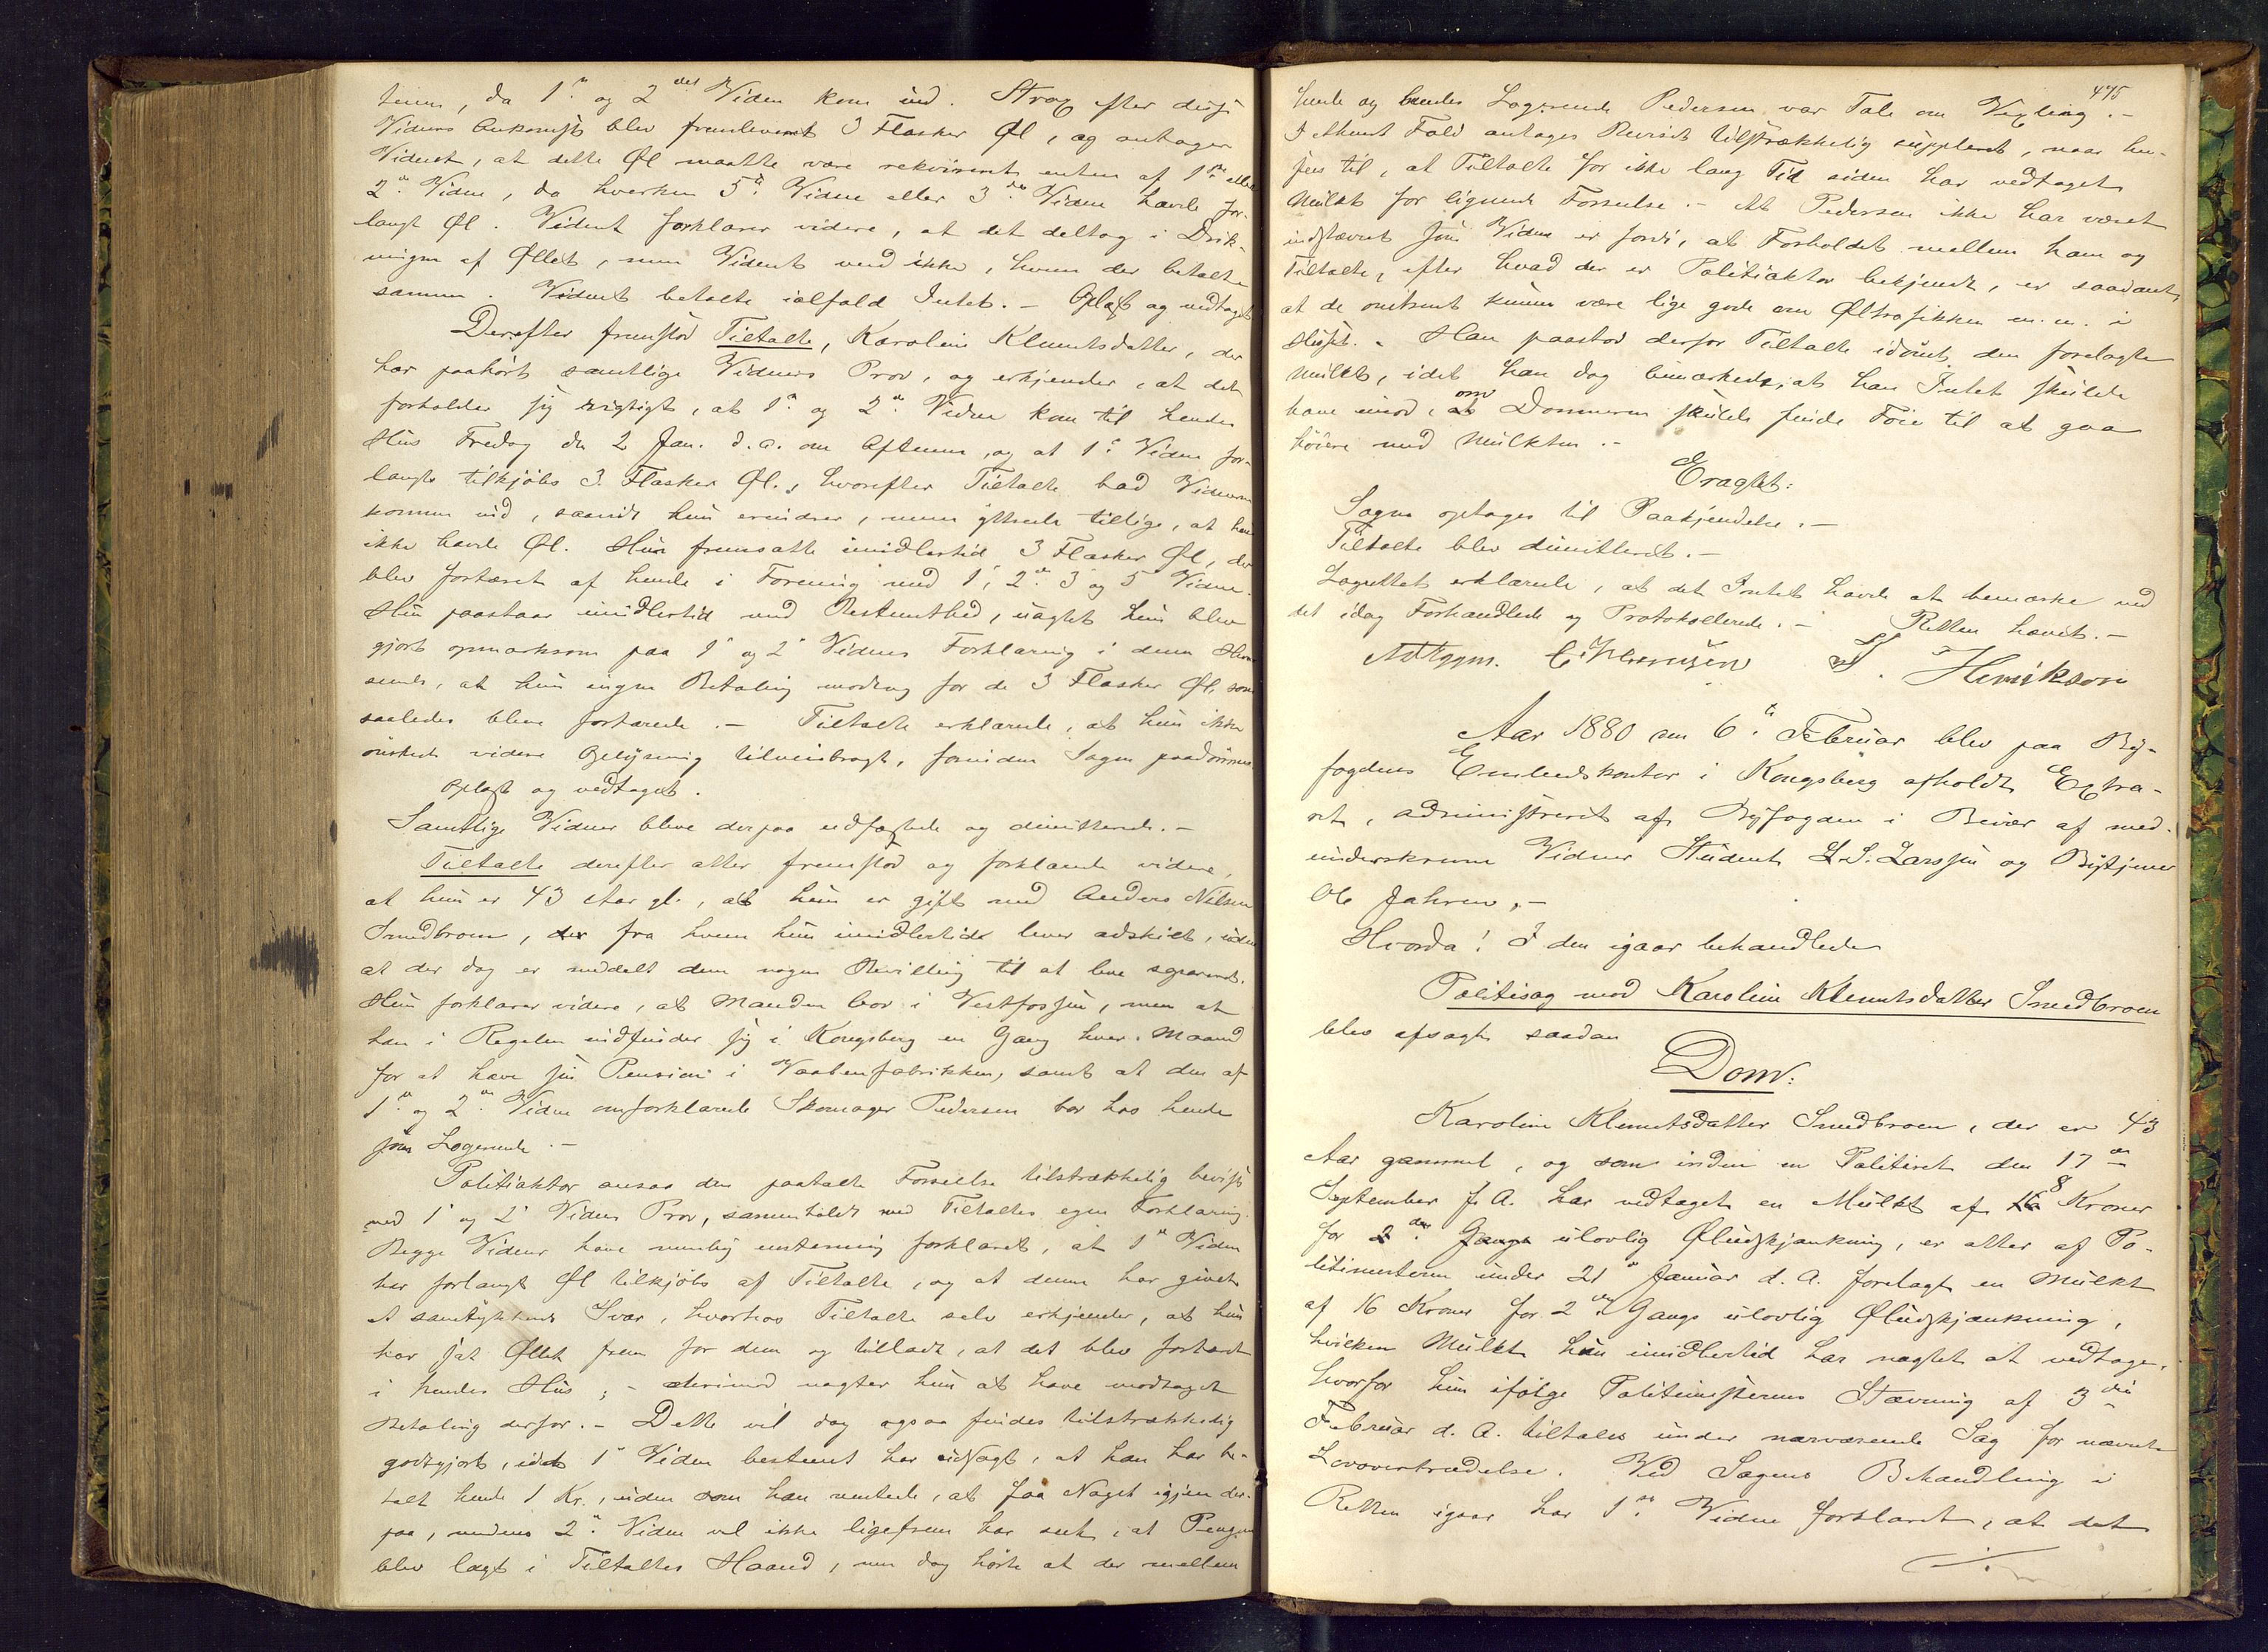 , da 1ste og 2det Vidne kom ind. Strax efter disse
Vidners Ankomst blev fremleveret 3 Flasker Øl, og antager
Vidnet, at dette Øl maatte være rekvireret enten af 1ste eller
2det Vidne, da hverken 5te Vidne eller 3die Vidne havde for-
langt Øl. Vidnet forklarer videre, at det deltog i Drik-
ningen af Øllet, men Vidnet ved ikke, hvem der betalte
samme. Vidnet betalte ialfald Intet. – Oplæst og vedtaget
Derefter fremstod Tiltalte, Karoline Klemetsdatter, der
har paahørt samtlige Vidners Prov, og erkjender, at det
forholder sig rigtigt, at 1ste og 2det Vidne kom til hendes
Hus Fredag den 2 Jan. d. a. om Aftenen, og at 1ste Vidne for-
langte tilkjøbs 3 Flasker Øl, hvorefter Tiltalte bad Vidnerne
komme ind, saavidt hun erindrer, men yttrede tillige, at hun
ikke havde Øl. Hun fremsatte imidlertid 3 Flasker Øl, der
blev fortæret af hende i Forening med 1, 2de 3 og 5 Vidne.
Hun paastaar imidlertid med Bestemthed, uagtet hun blev
gjort opmærksom paa 1ste og 2det Vidnes Forklaring i denne Hen-
seende, at hun ingen Betaling modtog for de 3 Flasker Øl, som
saaledes bleve fortærede. – Tiltalte erklærede, at hun ikke
ønskede videre Oplysning tilveiebragt, forinden Sagen paadømmes.
Oplæst og vedtaget.
Samtlige Vidner bleve derpaa edfæstede og dimitterede. –
Tiltalte derefter atter fremstod og forklarede videre,
at hun er 43 Aar gl., at hun er gift med Anders Nilsen
Smedbroen, fra hvem hun imidlertid lever adskilt, uden
at der dog er meddelt dem nogen Bevilling til at leve separeret.
Hun forklarer videre, at Manden bor i Vestfossen, men at
han i Regelen indfinder sig i Kongsberg en Gang hver Maaned
for at hæve sin Pension i Vaabenfabrikken, samt at den af
1ste og 2det Vidne omforklarede Skomager Pedersen bor hos hende
som Logerende. –
Politiaktor ansaa den paatalte Forseelse tilstrækkelig bevist
ved 1ste og 2det Vidnes Prov, sammenholdt med Tiltaltes egen Forklaring.
Begge Vidner have nemlig enstemmig forklaret, at 1ste Vidne
har forlangt Øl tilkjøbs af Tiltalte, og at denne har givet
et samtykkende Svar, hvorhos Tiltalte selv erkjender, at hun
har sat Øllet frem for dem og tilladt, at det blev fortæret
i hendes Hus; – derimod nægter hun at have modtaget
Betaling derfor. – Dette vil dog ogsaa findes tilstrækkelig
godtgjort, idet 1ste Vidne bestemt har udsagt, at han har be-
talt hende 1 Kr., uden som han ventede, at faa Noget igjen der-
paa, medens 2det Vidne vel ikke ligefrem har seet, at Pengene
blev lagt i Tiltaltes Haand, men dog hørte at der mellem
475
hende og hendes Logerende Pedersen var Tale om Vexling. –
I ethvert Fald antages Beviset tilstrækkelig suppleret, naar hen-
sees til, at Tiltalte for ikke lang Tid siden har vedtaget
Mulkt for lignende Forseelse. – At Pedersen ikke har været
indstævnet som Vidne er fordi, at Forholdet mellem ham og
Tiltalte, efter hvad der er Politiaktor bekjendt, er saadant,
at de omtrent kunne være lige gode om Øltrafikken m. m. i
Huset. – Han paastod derfor Tiltalte idømt den forelagte
Mulkt, idet han dog bemærkede, at han Intet skulde
have imod, om Dommeren skulde finde Føie til at gaa
høiere med Mulkten. –
Eragtet:
Sagen optages til Paakjendelse. –
Tiltalte blev dimitteret. –
Lagrettet erklærede, at det Intet havde at bemærke ved
det idag Forhandlede og Protokollerede. – Retten hævet. –
Henrikson
Aar 1880 den 6te Februar blev paa By-
fogdens Embedskontor i Kongsberg afholdt Extra-
ret, administreret af Byfogden i Bevær af med-
underskrevne Vidner Student L. S. Larssen og Bytjener
Ole Jahren. –
Hvorda: I den igaar behandlede
Politisag mod Karoline Klemetsdatter Smedbroen
blev afsagt saadan
Dom:
Karoline Klemetsdatter Smedbroen, der er 43
Aar gammel, og som inden en Politiret den 17de
September f. A. har vedtaget en Mulkt af 8 Kroner
for ulovlig Øludskjænkning, er atter af Po-
litimesteren under 21de Januar d. A. forelagt en Mulkt
af 16 Kroner for 2den Gangs ulovlig Øludskjænkning,
hvilken Mulkt hun imidlertid har nægtet at vedtage,
hvorfor hun ifølge Politimesterens Stævning af 3die
Februar d. A. tiltales under nærværende Sag for nævnte
Lovovertrædelse. Ved Sagens Behandling i
Retten igaar har 1ste Vidne forklaret, at det